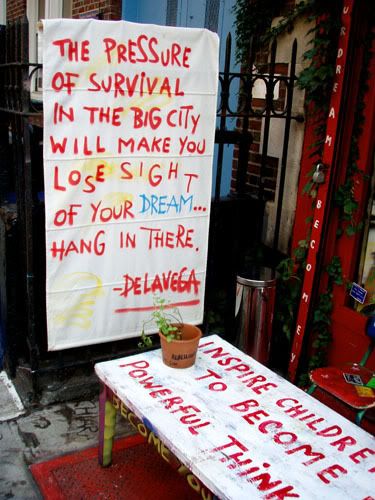 THE PRESSURE
OF SURVIVAL
IN THE BIG CITY
WILL MAKE YOU
LOSE SIGHT
OF YOUR DREAM...
HANG IN THERE.
-DELAVEGA
INSPIRE CHILDREN
TO BECOME
POWERFUL THINK
BECOME YO
UR DREAM
BECOME